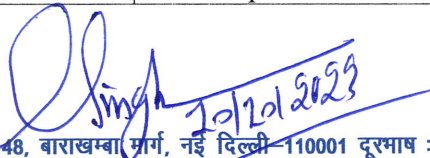 Singh
20/10/2023
48, बाराखम्बा मार्ग, नई दिल्ली-110001 दूरभाष :